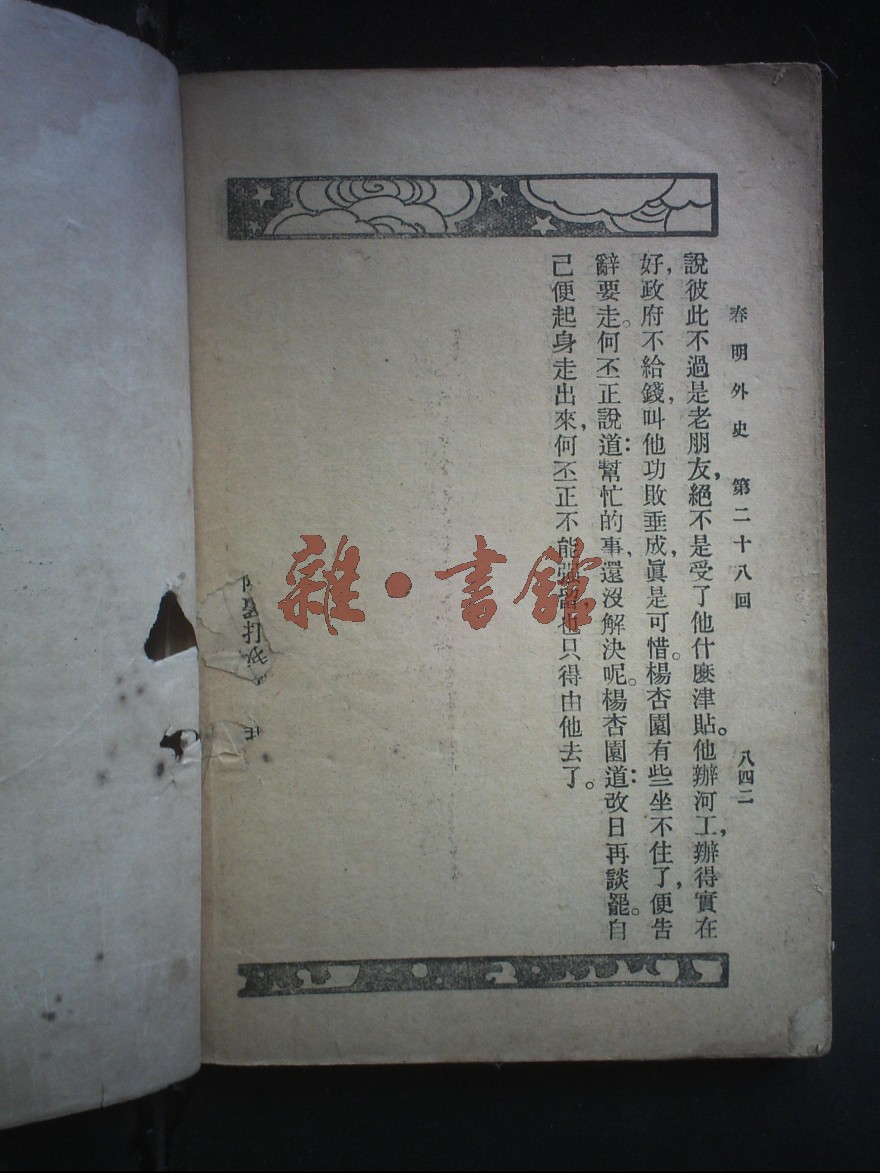 春明外史 第二十八回 八四二
說彼此不過是老朋友,絕不是受了他什麽津貼。他辦河工,辦得實在
好,政府不給錢,叫他功敗垂成,眞是可惜。楊杏園有些坐不住了,便告
辭要走。何丕正說道:幫忙的事,還沒解決呢。楊杏園道:改日再談罷。自
己便起身走出來,何丕正不能強留,也只得由他去了。
雜·書館